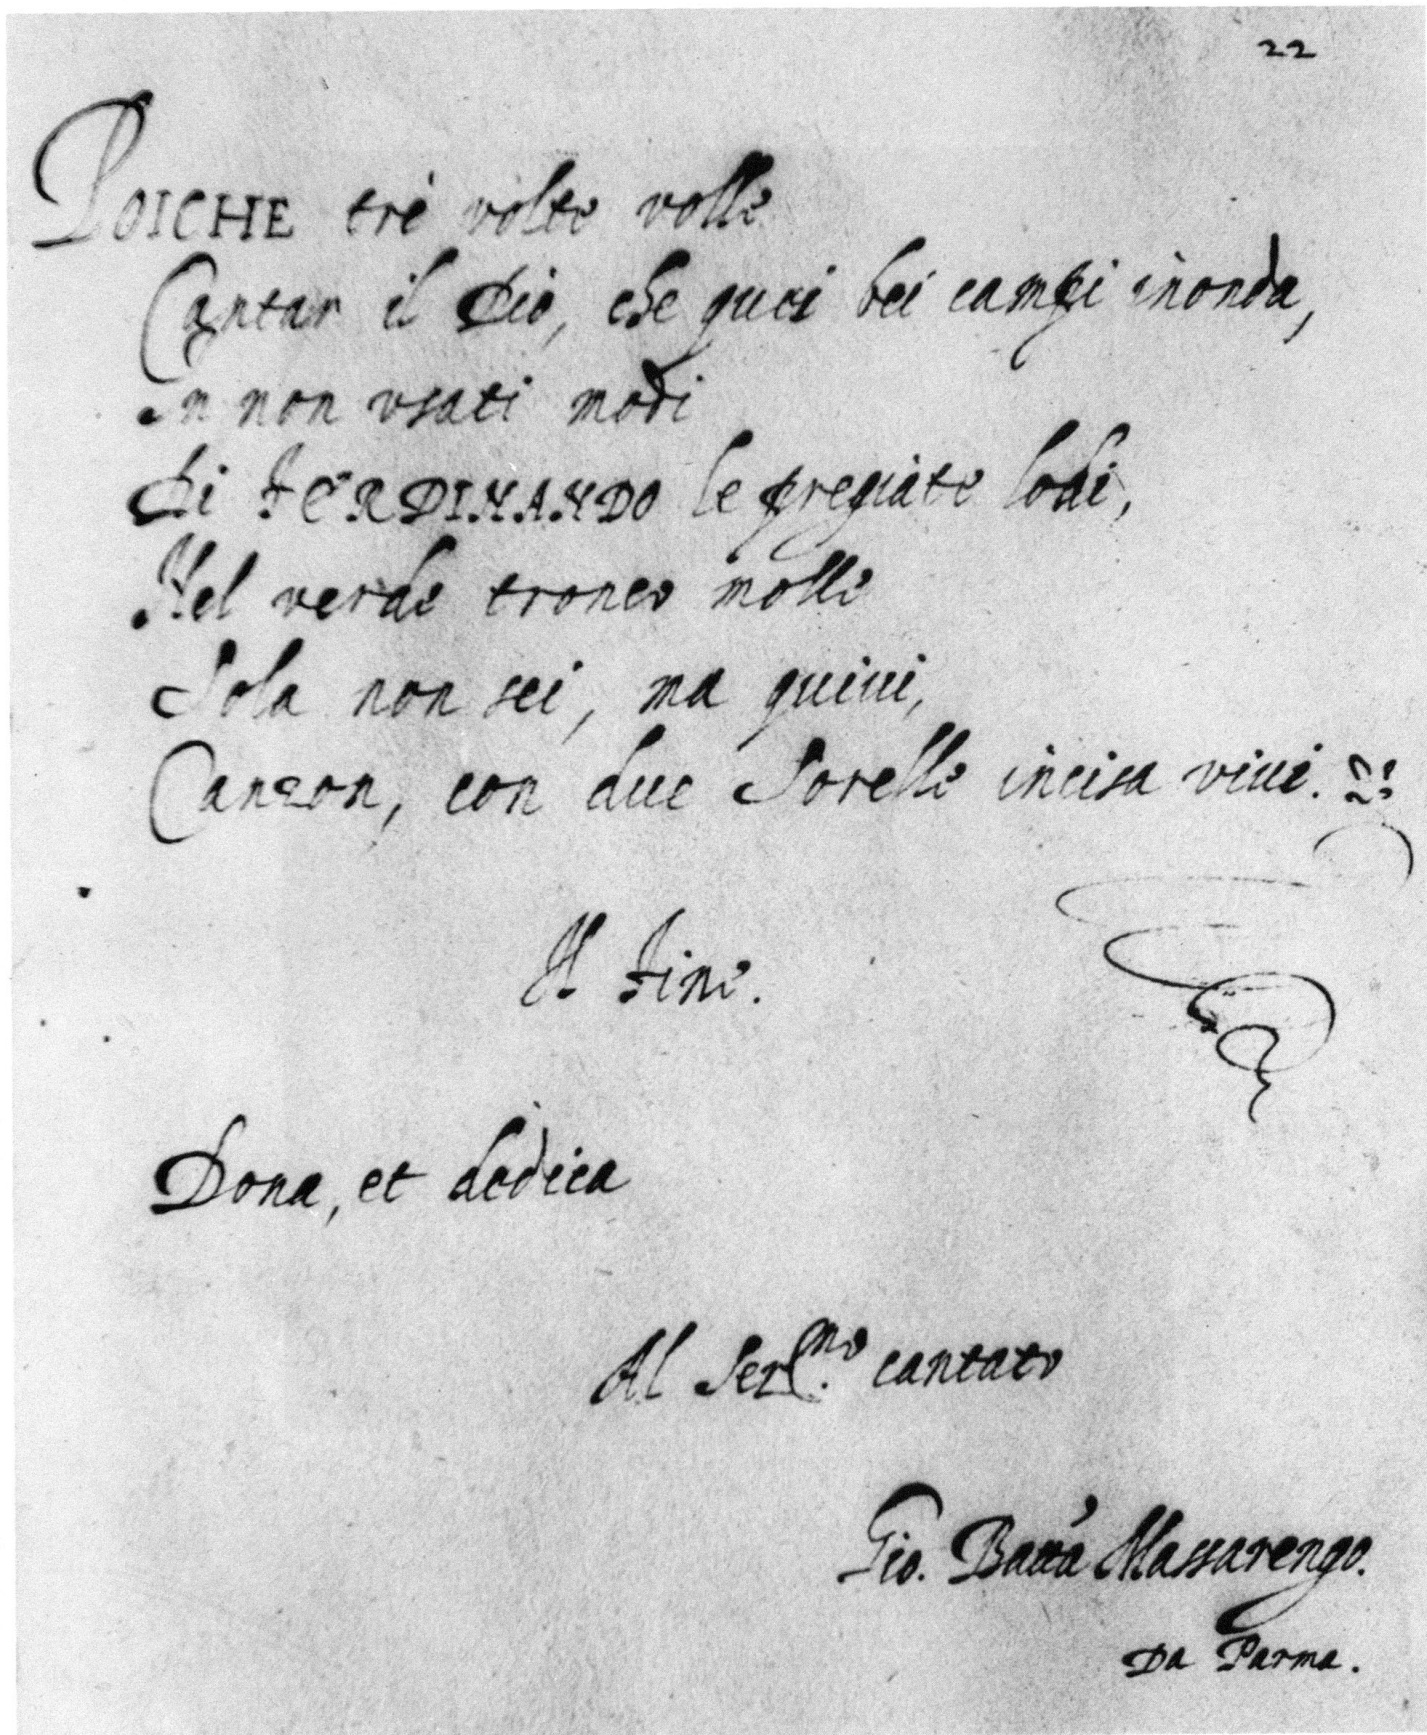 22
POICHE trè volte volle
Cantar il Dio, che quei bei campi inonda,
In non vsati modi
Di FERDINANDO le pregiate lodi,
Nel verde tronco molle
Sola non sei, ma quiui,
Canzon, con due Sorelle incisa viui.
Il Fine.
Dona, et dedica
Al Ser.mo cantato
Gio. Batta Massarengo.
Da Parma.